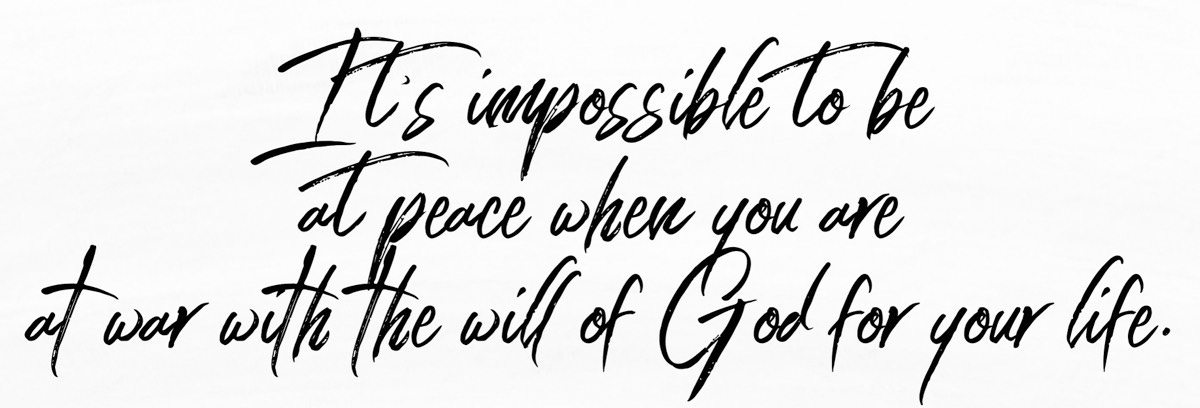 It's impossible to be
at peace when you are
at war with the will of God for your life.